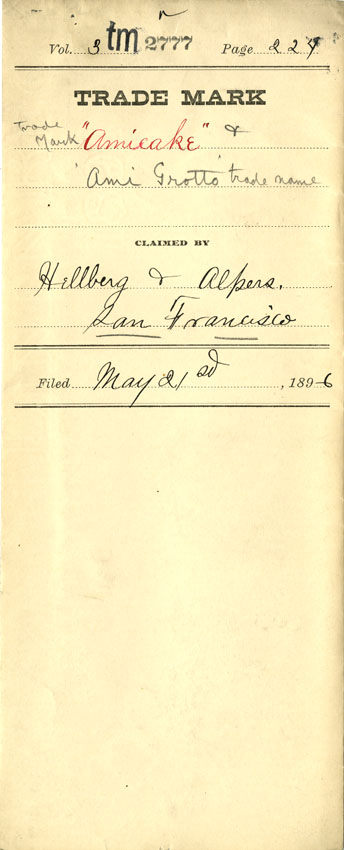 Vol. 3 tm 2777 Page 224
TRADE MARK
Trade Mark "Amicake" &
"Ami Grotto" trade name
CLAIMED BY
Hellberg & Alpers.
San Francisco
Filed May 21sd, 1896